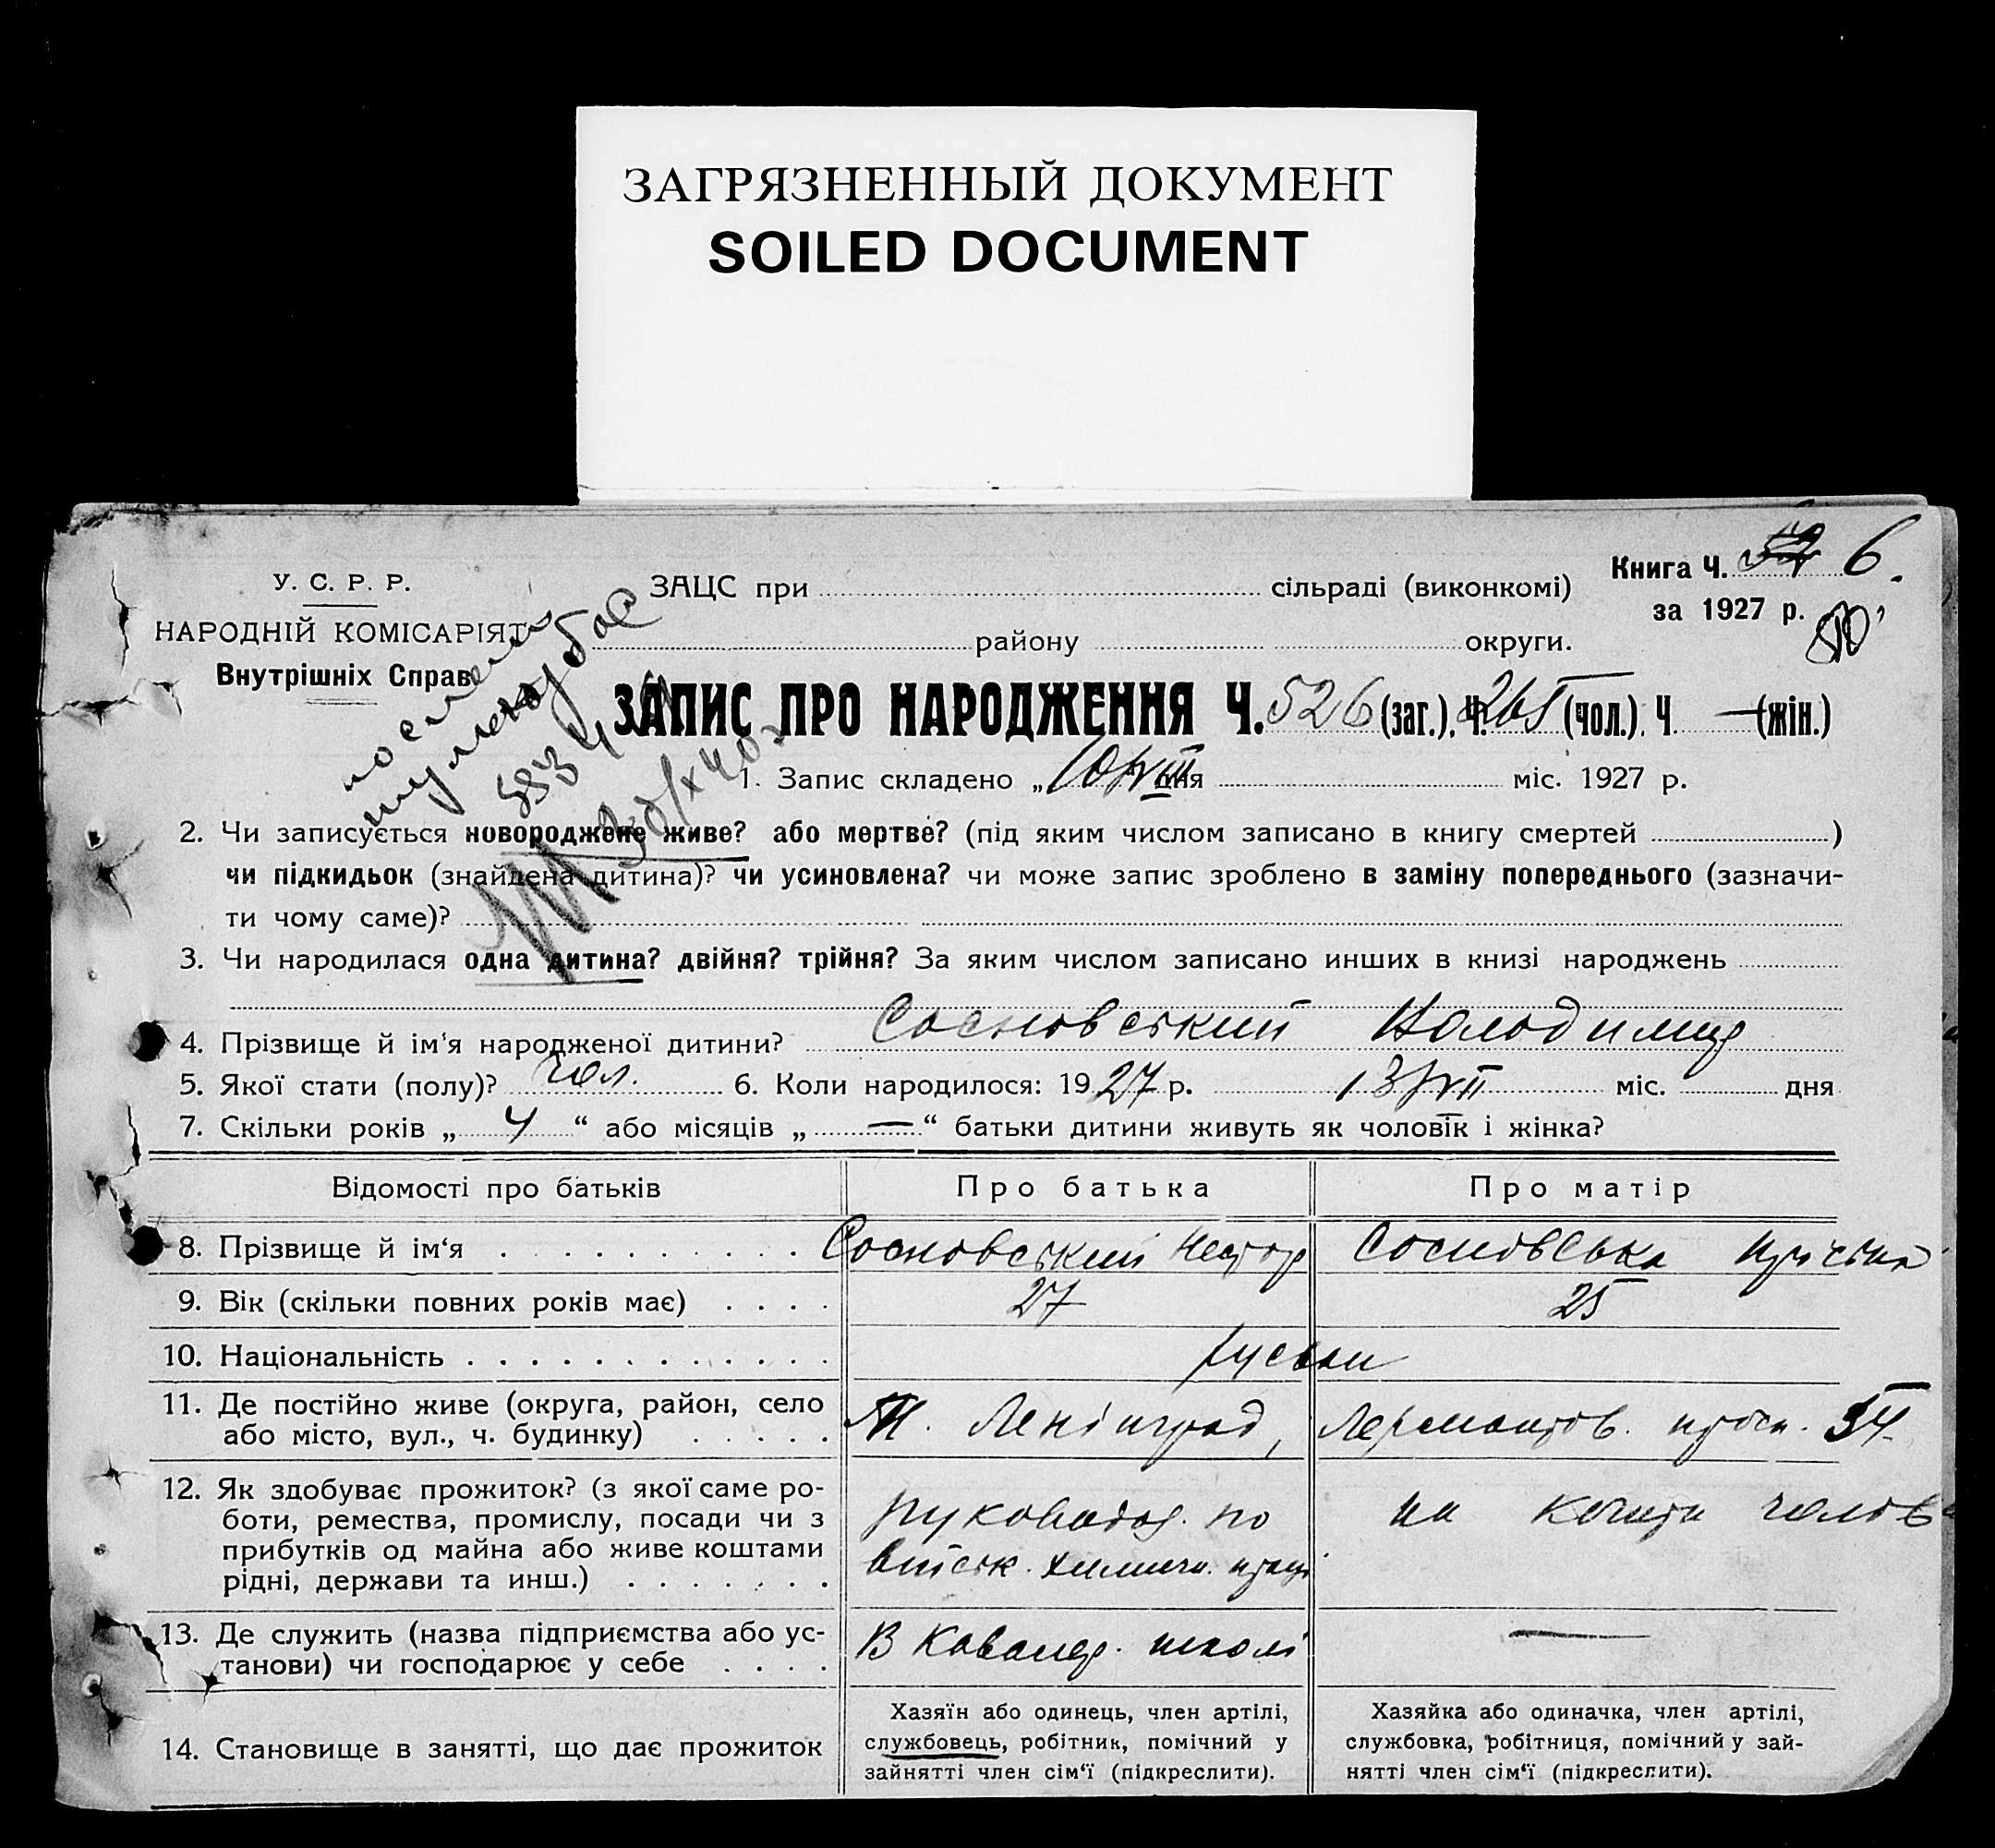 ЗАГРЯЗНЕННЫЙ ДОКУМЕНТ
SOILED DOCUMENT
Книга Ч. 6.
за 1927 р.
У. С. Р. Р.
НАРОДНІЙ КОМІСАРІЯТ
Внутрішніх Справ
ЗАЦС при сільраді (виконкомі)
району округи.
ЗАПИС ПРО НАРОДЖЕННЯ Ч. 526 (заг.), Ч. 265 (чол.), Ч. — (жін.)
1. Запис складено „ 10/VIII дня міс. 1927 р.
2. Чи записується новороджене живе? або мертве? (під яким числом записано в книгу смертей )
чи підкидьок (знайдена дитина)? чи усиновлена? чи може запис зроблено в заміну попереднього (зазначи-
ти чому саме)?
3. Чи народилася одна дитина? двійня? трійня? За яким числом записано инших в книзі народжень
4. Прізвище й ім'я народженої дитини? Сосновський Володимир
5. Якої стати (полу)? чол. 6. Коли народилося: 1927 р. 13/VII міс. дня
7. Скільки років „ 4 “ або місяців „ — “ батьки дитини живуть як чоловік і жінка?
Відомості про батьків Про батька Про матір
8. Прізвище й ім‘я Сосновський Нестор Сосновська
9. Вік (скільки повних років має) 27 25
10. Національність
11. Де постійно живе (округа, район, село
або місто, вул., ч. будинку)
М. Ленінград, Лермонтов. просп. 54
12. Як здобуває прожиток? (з якої саме ро-
боти, ремества, промислу, посади чи з
прибутків од майна або живе коштами
рідні, держави та инш.)
руковод. по
військ. химичн.
на кошти
13. Де служить (назва підприємства або ус-
танови) чи господарює у себе
В Кавалер. школі —
14. Становище в занятті, що дає прожиток
Хазяїн або одинець, член артілі,
службовець, робітник, помічний у
зайнятті член сім‘ї (підкреслити).
Хазяйка або одиначка, член артілі,
службовка, робітниця, помічний у зай-
нятті член сім‘ї (підкреслити).